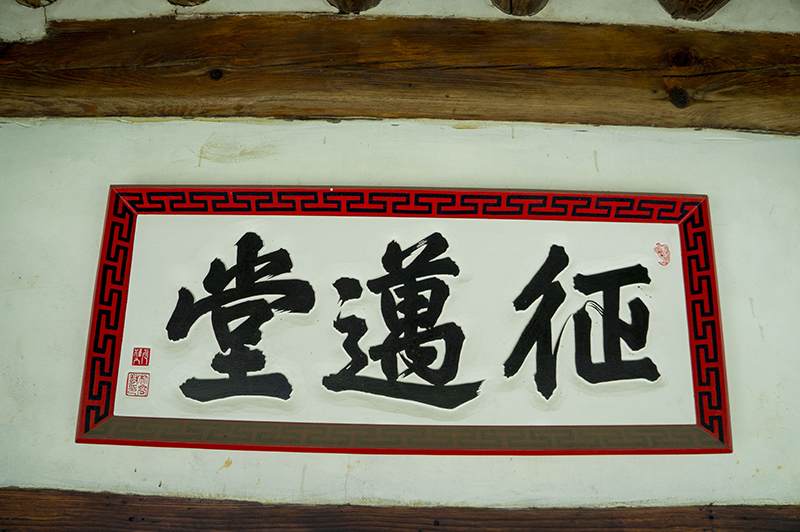 征邁堂